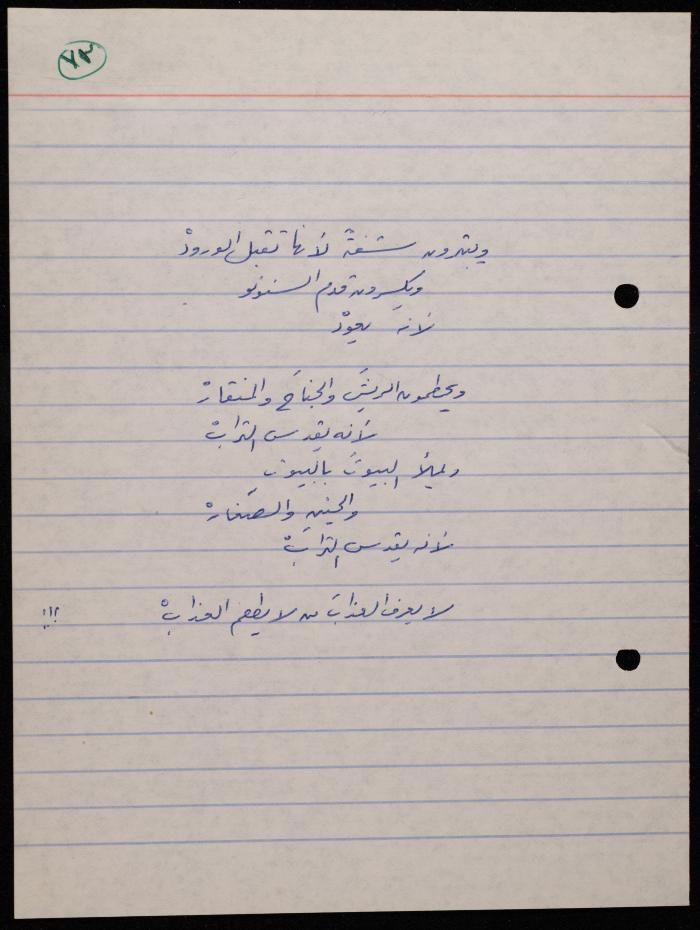 ٧٣
ويبترون شفةً لأنها تقبل الورودْ
ويكسرون قدم السنونو
لأنه يعودْ
ويحطمون الريشَ والجناحَ والمنقارْ
لأنه يقدس الترابْ
ويملأ البيوتَ بالبيوت
والحنينِ والصَّغارْ
لأنه يقدس الترابْ
لا يعرف العذابَ من لا يطعم العذابْ !!؟